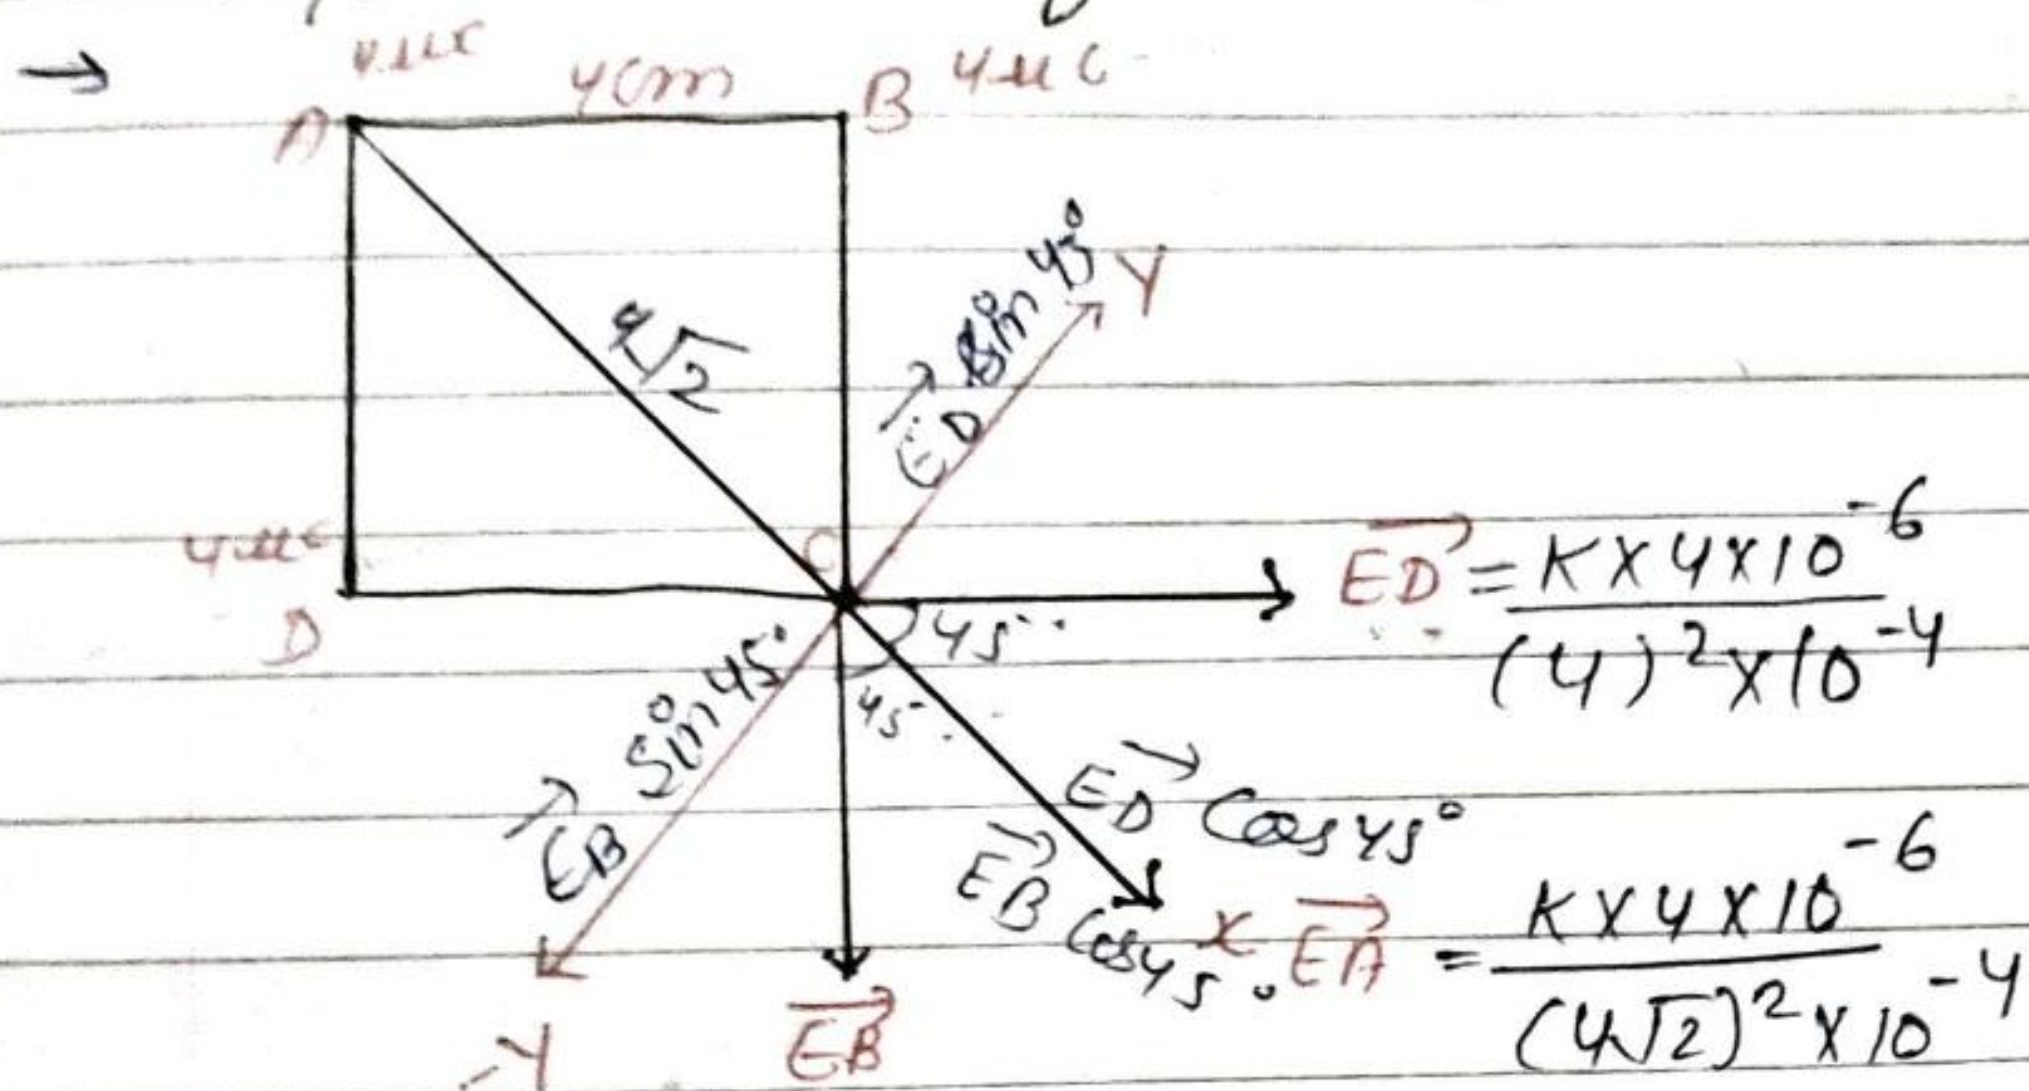 →
4μC
4cm
B 4μC
A
4√2
ED→ Sin 45° Y
4μC
C
D
45°
45°
ED→ = K X 4 X 10^-6 / (4)^2 X 10^-4
EB→ Sin 45°
ED→ Cos 45°
EB→ Cos 45°
X
EA→ = K X 4 X 10^-6 / (4√2)^2 X 10^-4
-Y
EB→